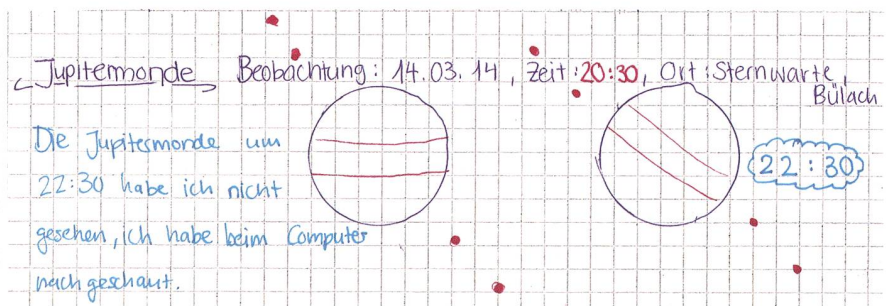 Jupitermonde Beobachtung: 14.03.14, Zeit: 20:30, Ort: Sternwarte,
Bülach
Die Jupitermonde um
22:30 habe ich nicht
gesehen, ich habe beim Computer
nachgeschaut.
22:30